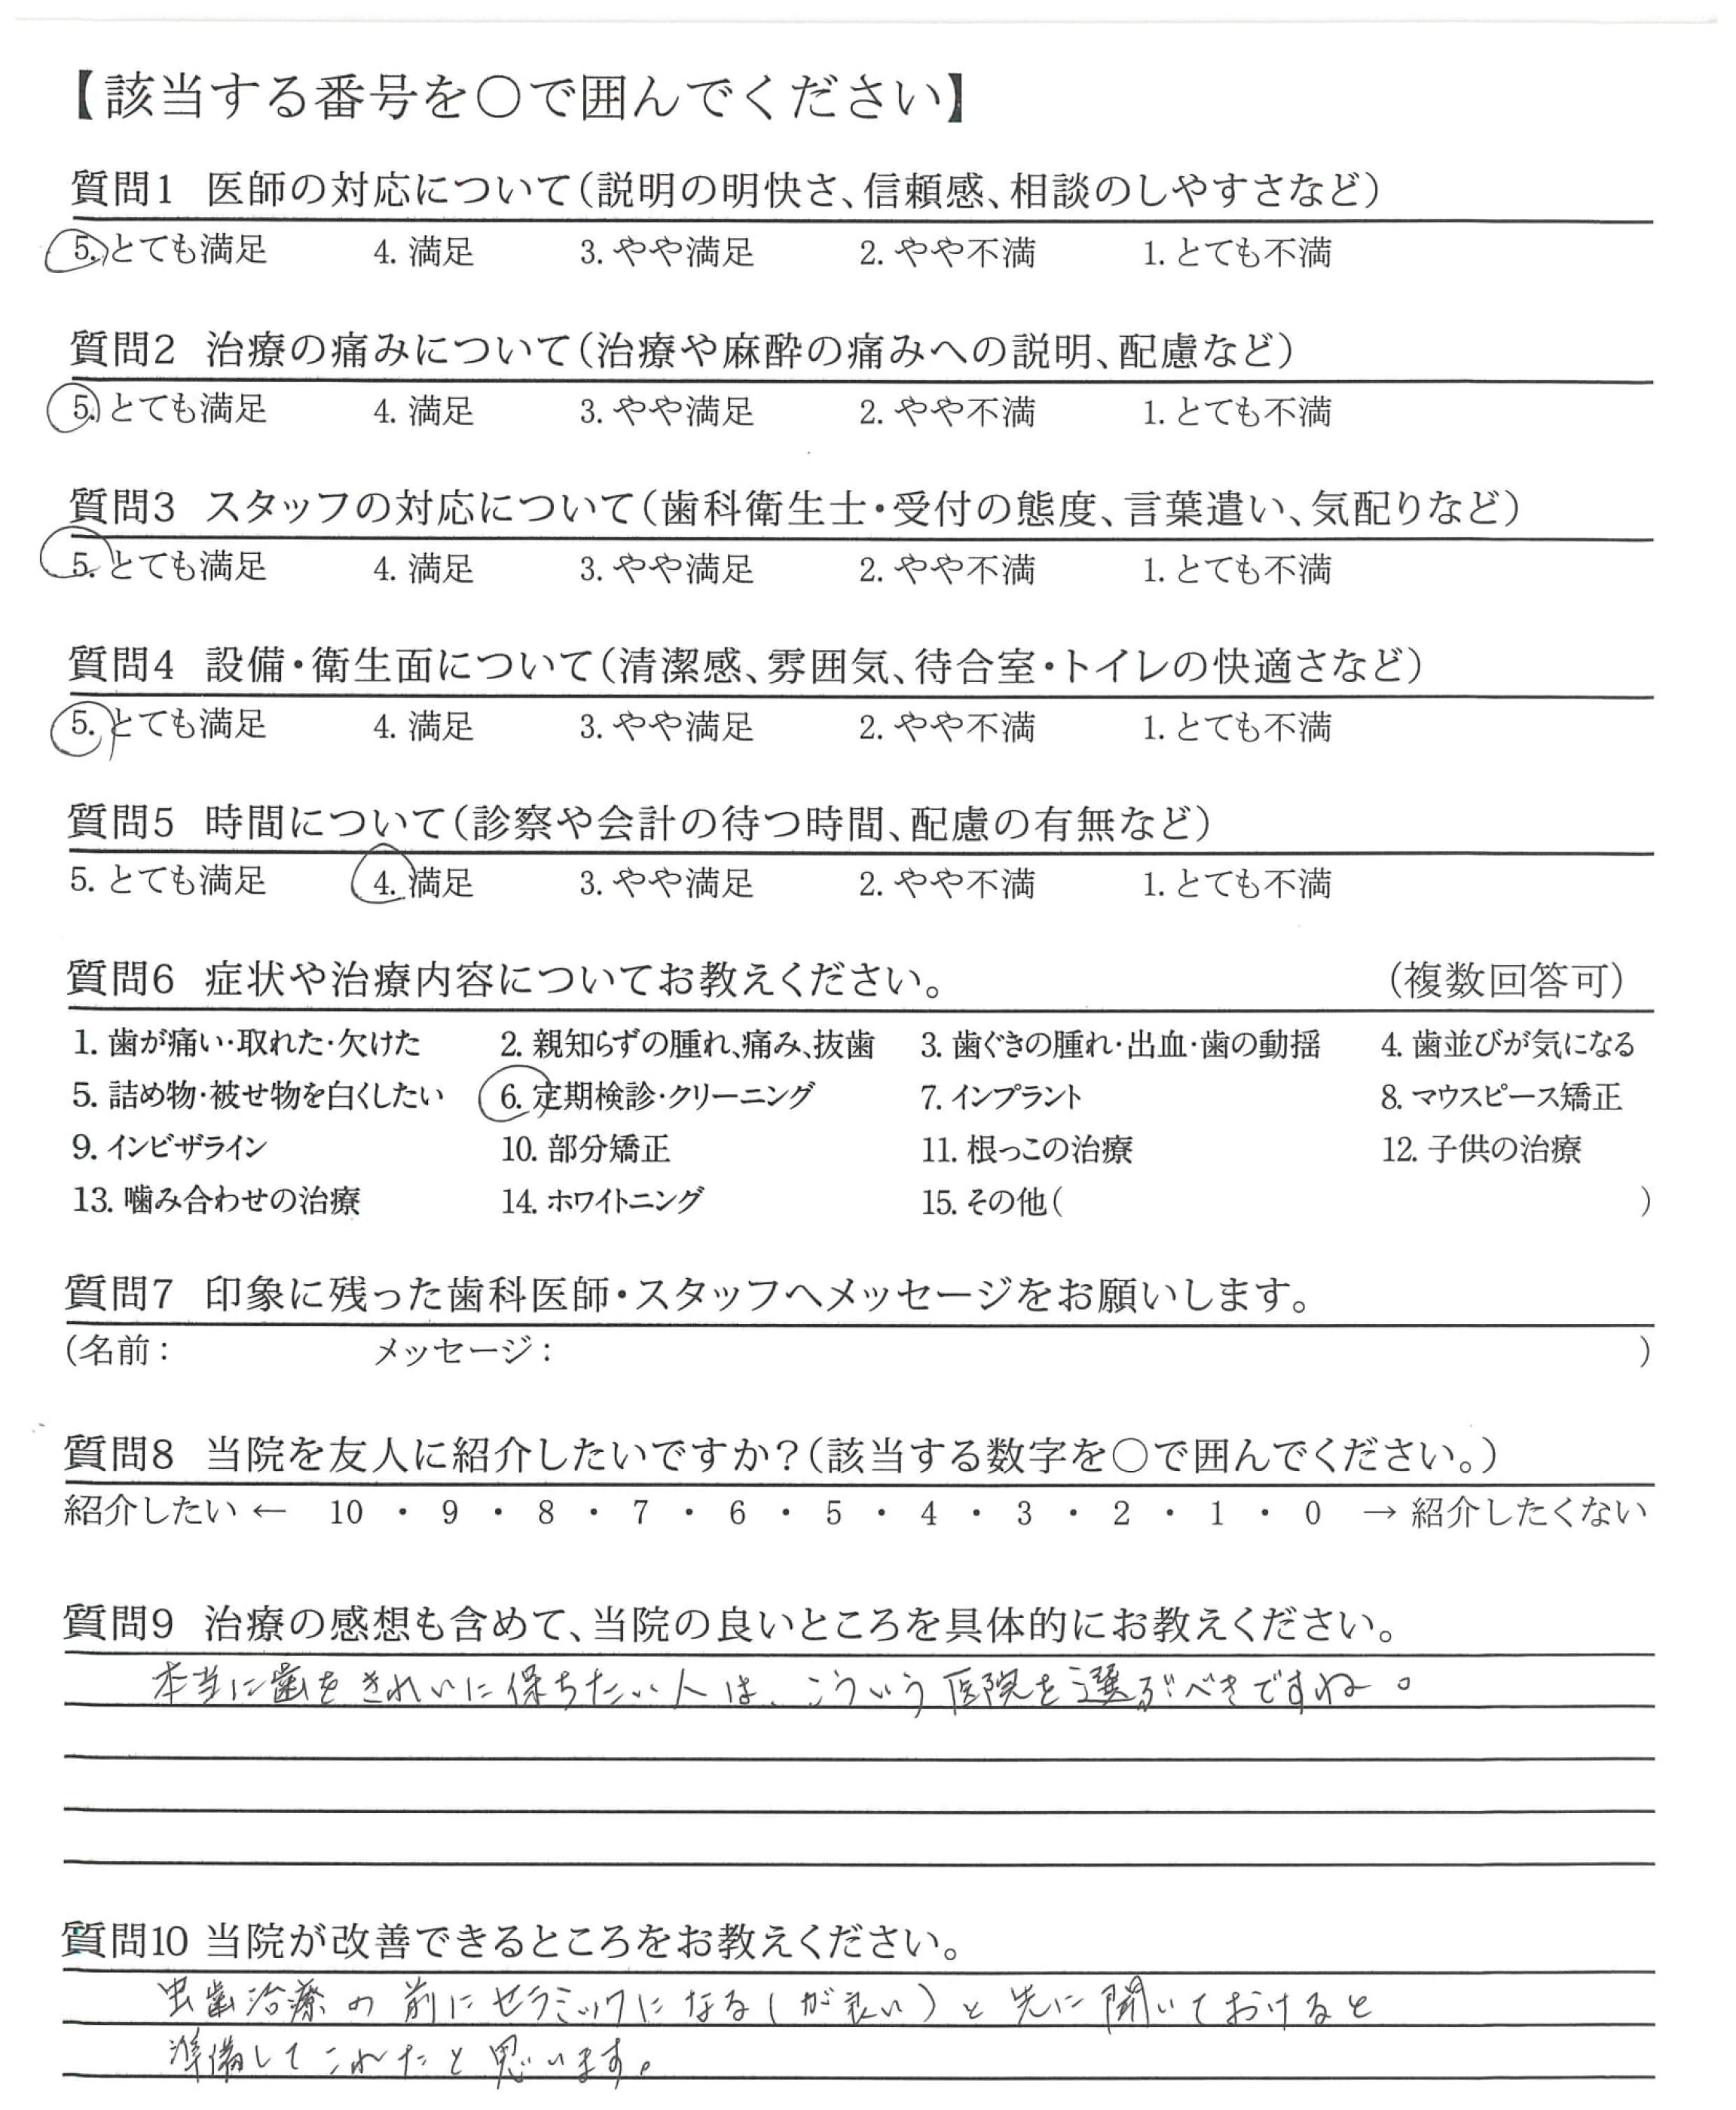 【該当する番号を○で囲んでください】
質問1 医師の対応について(説明の明快さ、信頼感、相談のしやすさなど)
5. とても満足 4. 満足 3. やや満足 2. やや不満 1. とても不満
質問2 治療の痛みについて(治療や麻酔の痛みへの説明、配慮など)
5. とても満足 4. 満足 3. やや満足 2. やや不満 1. とても不満
質問3 スタッフの対応について(歯科衛生士・受付の態度、言葉遣い、気配りなど)
5. とても満足 4. 満足 3. やや満足 2. やや不満 1. とても不満
質問4 設備・衛生面について(清潔感、雰囲気、待合室・トイレの快適さなど)
5. とても満足 4. 満足 3. やや満足 2. やや不満 1. とても不満
質問5 時間について(診察や会計の待つ時間、配慮の有無など)
5. とても満足 4. 満足 3. やや満足 2. やや不満 1. とても不満
質問6 症状や治療内容についてお教えください。 (複数回答可)
1. 歯が痛い・取れた・欠けた 2. 親知らずの腫れ、痛み、抜歯 3. 歯ぐきの腫れ・出血・歯の動揺 4. 歯並びが気になる
5. 詰め物・被せ物を白くしたい 6. 定期検診・クリーニング 7. インプラント 8. マウスピース矯正
9. インビザライン 10. 部分矯正 11. 根っこの治療 12. 子供の治療
13. 噛み合わせの治療 14. ホワイトニング 15. その他( )
質問7 印象に残った歯科医師・スタッフへメッセージをお願いします。
(名前: メッセージ: )
質問8 当院を友人に紹介したいですか?(該当する数字を○で囲んでください。)
紹介したい ← 10 ・ 9 ・ 8 ・ 7 ・ 6 ・ 5 ・ 4 ・ 3 ・ 2 ・ 1 ・ 0 → 紹介したくない
質問9 治療の感想も含めて、当院の良いところを具体的にお教えください。
本当に歯をきれいに保ちたい人は、こういう医院を選ぶべきですね。
質問10 当院が改善できるところをお教えください。
虫歯治療の前にセラミックになる(が良い)と先に聞いておけると
準備してこれたと思います。